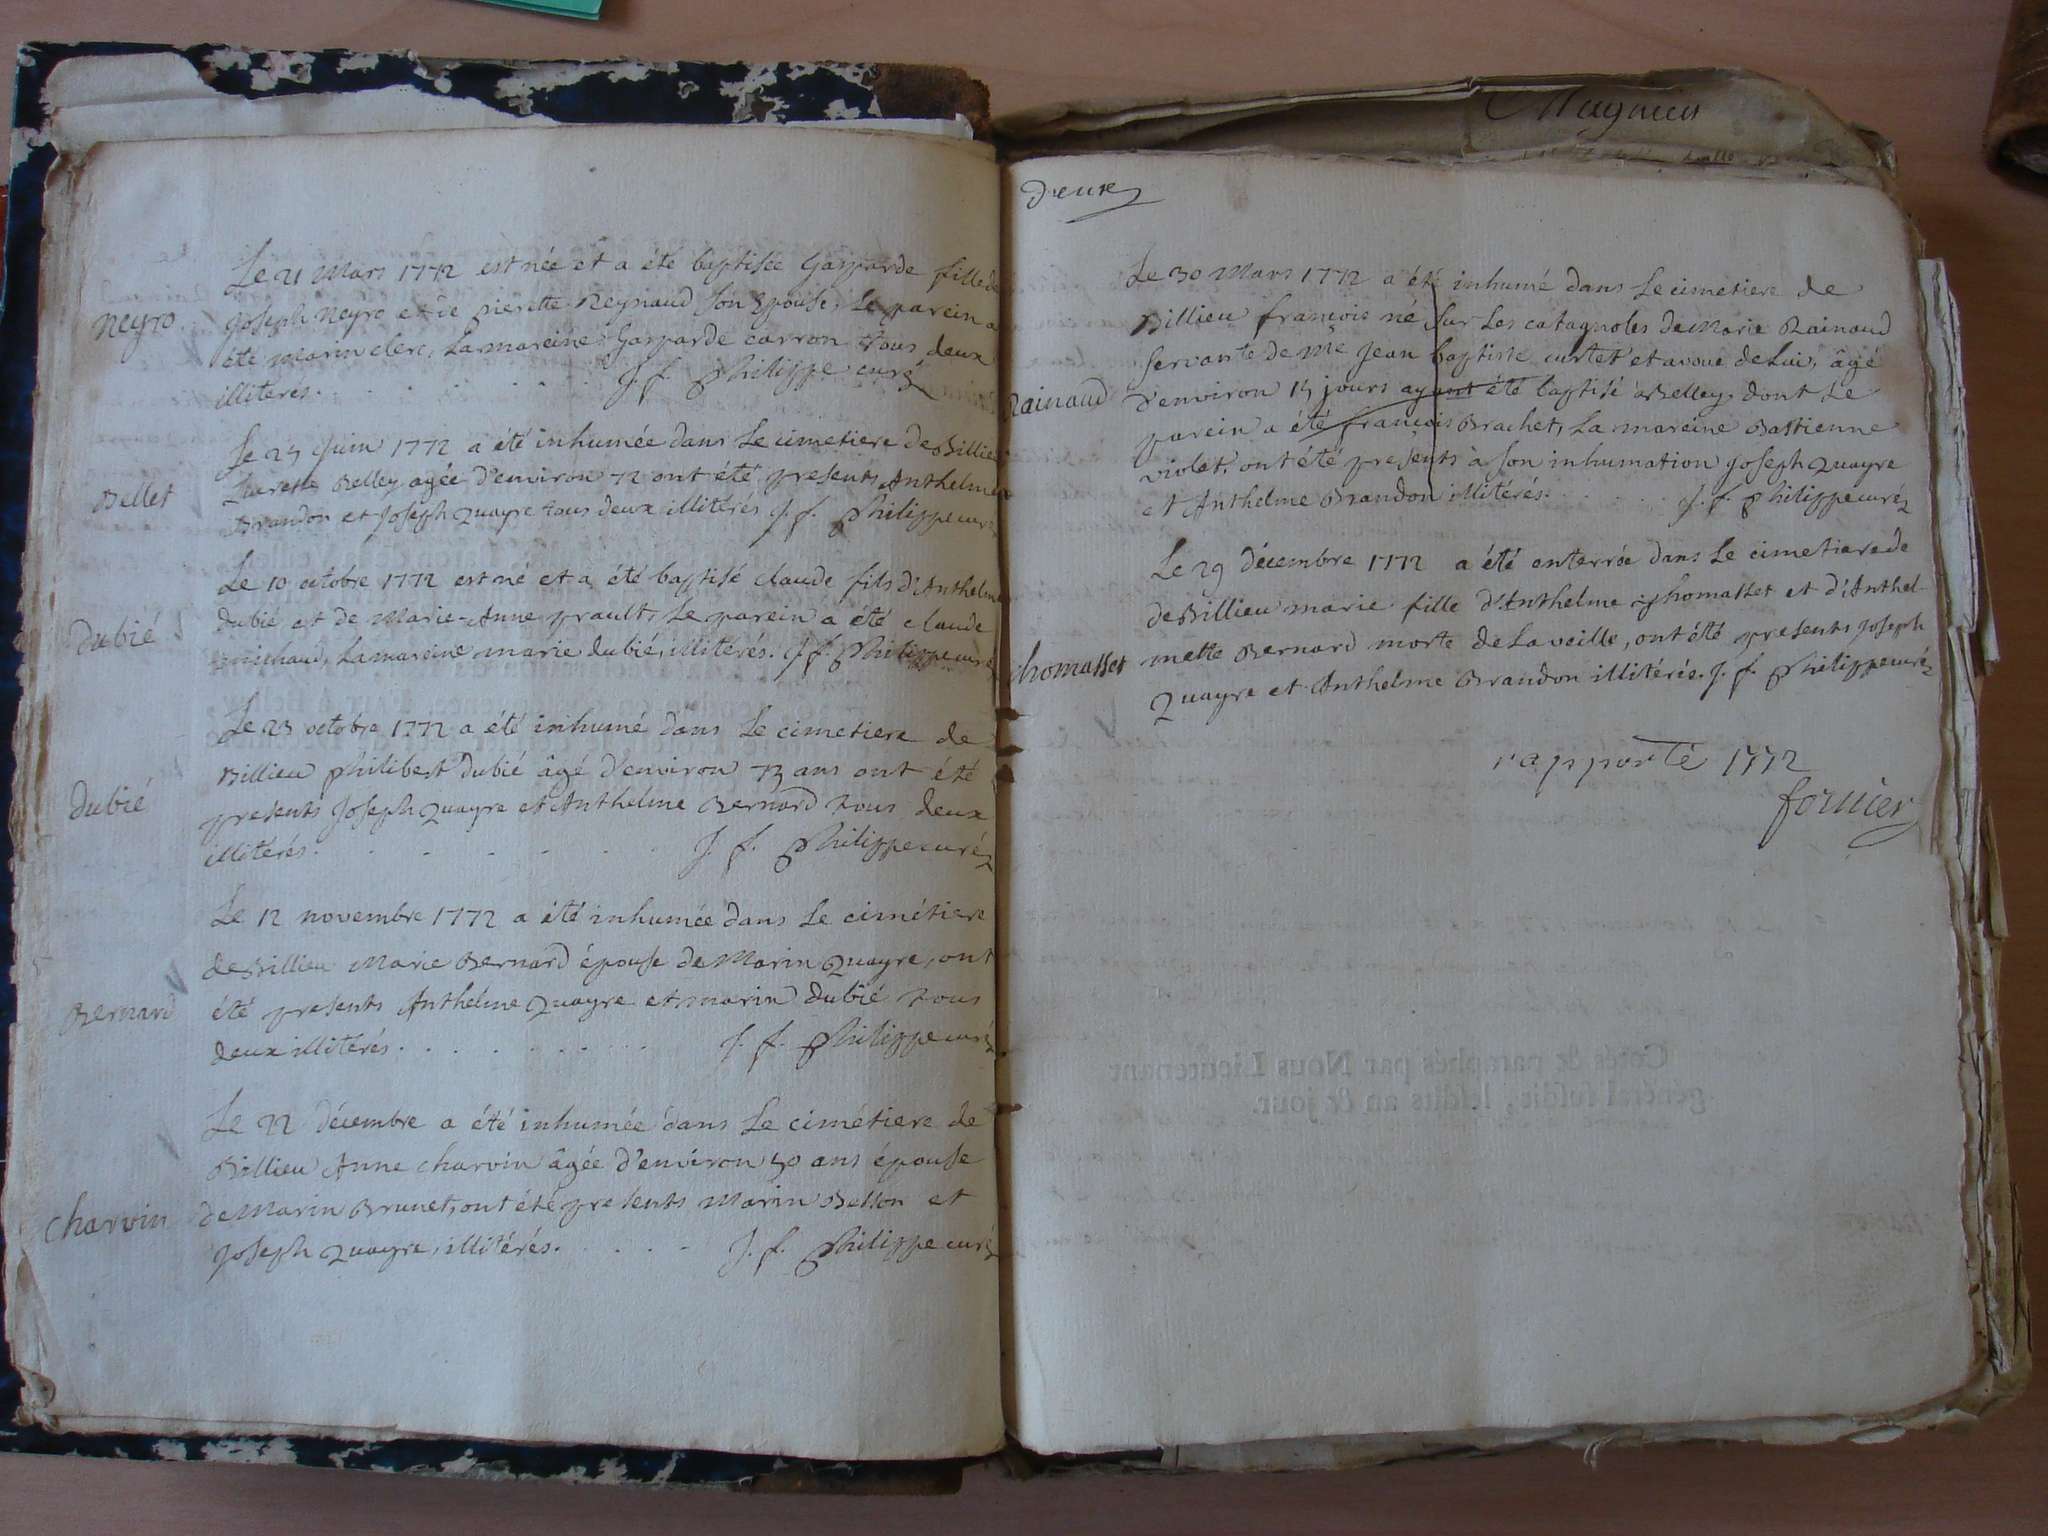 Le 21 Mars 1772 est née et a été baptisée Gasparde fille de
neyro
Joseph neyro et de pierrette Reynaud son epouse, Le parein a
été marin clerc, La mareine Gasparde carron tous deux
illiteres. J. f. Philippe curé
Le 25 Juin 1772 a été inhumée dans Le cimetiere de Billieu
Bellet
Belley agée d'environ 72 ont été presents Anthelme
Brandon et Joseph Quayre tous deux illitérés J. f. Philippe curé
Le 10 octobre 1772 est né et a été baptisé claude fils d'Anthelme
dubié
dubié et de Marie-Anne prault, Le parein a été claude
michaud, La mareine marie dubié, illitérés. J. f. Philippe curé
Le 23 octobre 1772 a été inhumé dans Le cimetiere de
Billieu philibert dubié âgé d'environ 73 ans ont été
dubié
presents Joseph Quayre et Anthelme Bernard tous deux
illitérés. J. f. Philippe curé
Le 12 novembre 1772 a été inhumée dans Le cimétiere
de Billieu Marie Bernard épouse de Marin Quayre, ont
Bernard
été presents Anthelme Quayre et marin dubié tous
deux illitérés. J. f. Philippe curé
Le 22 décembre a été inhumée dans Le cimétiere de
Billieu Anne charvin âgée d'environ 50 ans épouse
charvin
de Marin Brunet, ont été presents Marin Besson et
Joseph Quayre, illitérés. J. f. Philippe curé
Magnien
deux
Le 30 Mars 1772 a été inhumé dans Le cimetiere de
Billieu françois né Sur Les catagnoles de Marie Rainaud
servante de Me Jean baptiste curtet et avoué de Lui, âgé
Rainaud
d'environ 15 jours ayant été baptisé à Belley dont Le
parein a été françois Brachet, La mareine Bastienne
violet, ont été presents à son inhumation Joseph Quayre
et Anthelme Brandon illitérés. J. f. Philippe curé
Le 29 décembre 1772 a été enterrée dans Le cimetiere de
de Billieu marie fille d'Anthelme thomasset et d'Anthel-
thomasset
mette Bernard morte de La veille, ont été presents Joseph
Quayre et Anthelme Brandon illitérés. J. f. Philippe curé
rapporté 1772
fornier
Cotés & paraphés par Nous Lieutenant
général susdit, lesdits an & jour.